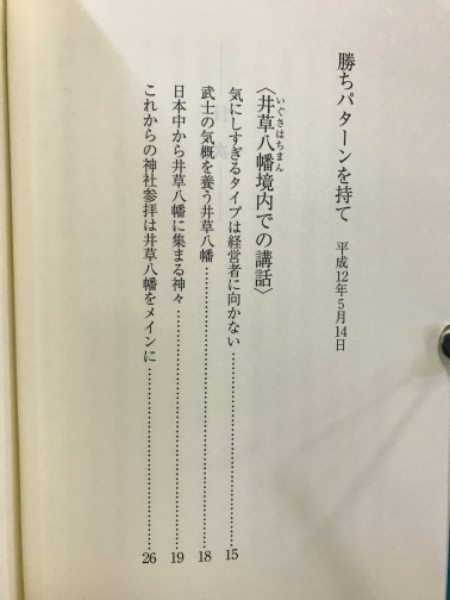 勝ちパターンを持て　平成12年5月14日
〈井草八幡境内での講話〉
いぐさはちまん
気にしすぎるタイプは経営者に向かない…………………………15
武士の気概を養う井草八幡…………………………………………18
日本中から井草八幡に集まる神々…………………………………19
これからの神社参拝は井草八幡をメインに………………………26